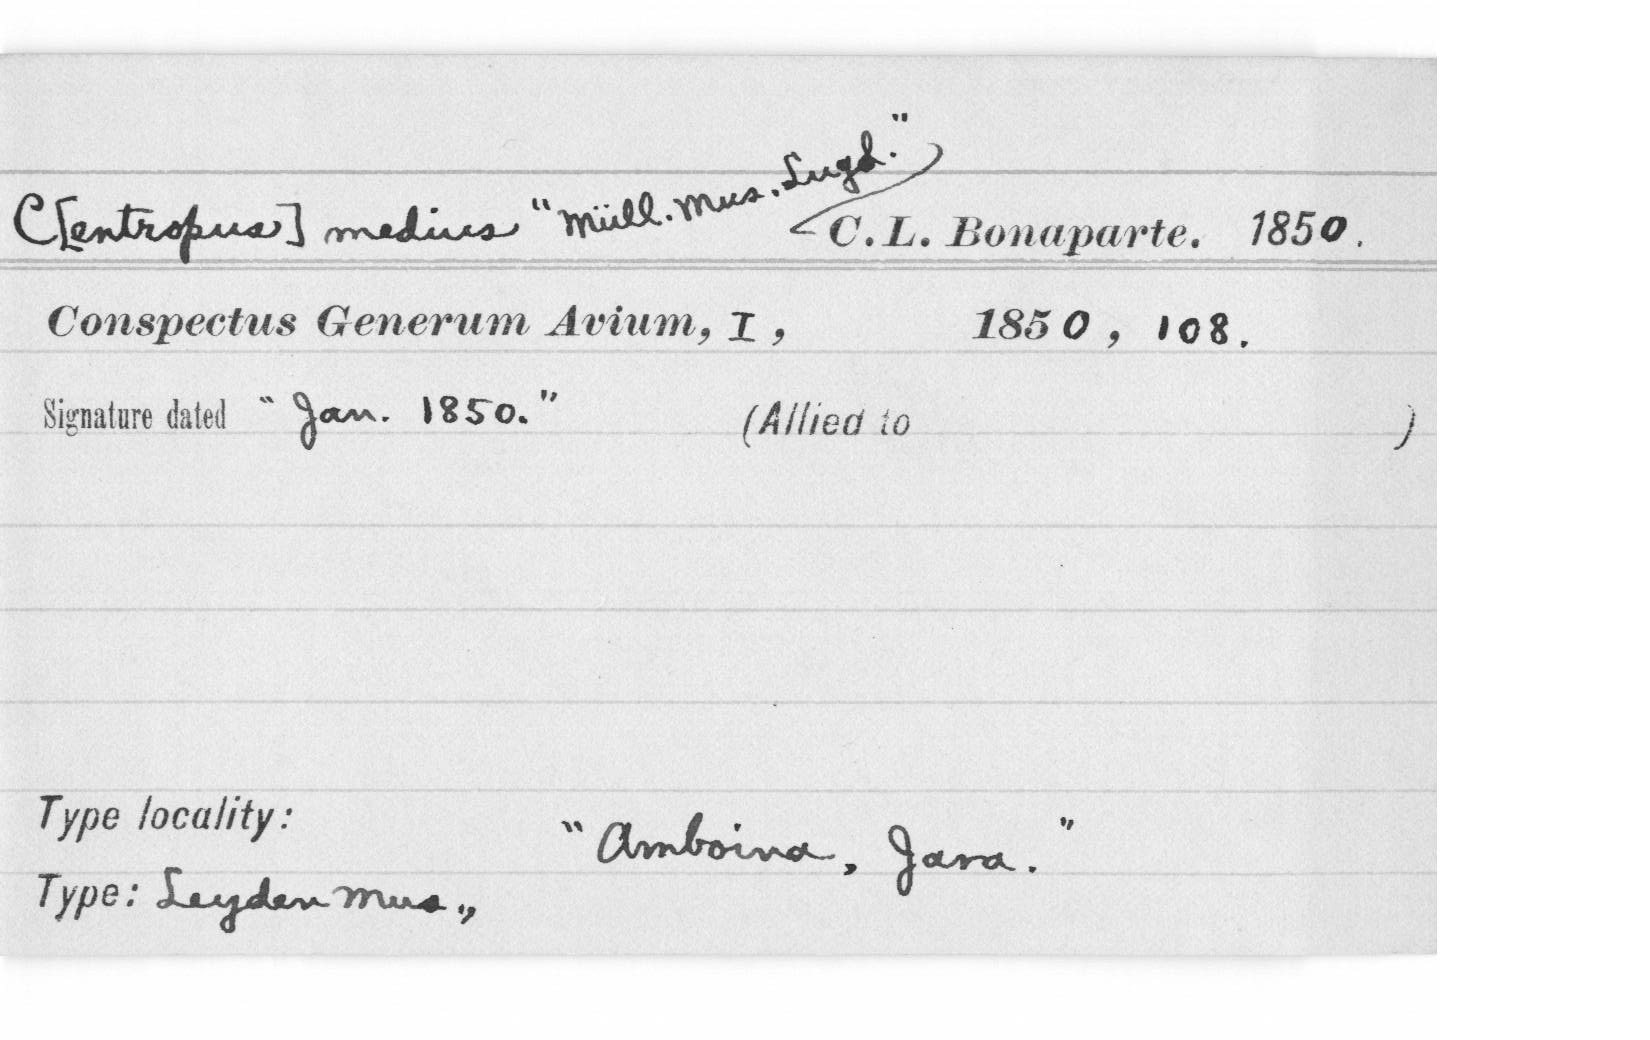 C[entropus] medius "Müll. Mus. Lugd." C. L. Bonaparte. 1850.
Conspectus Generum Avium, I, 1850, 108.
Signature dated "Jan. 1850." (Allied to )
Type locality:
"Amboina, Java."
Type: Leyden Mus.,